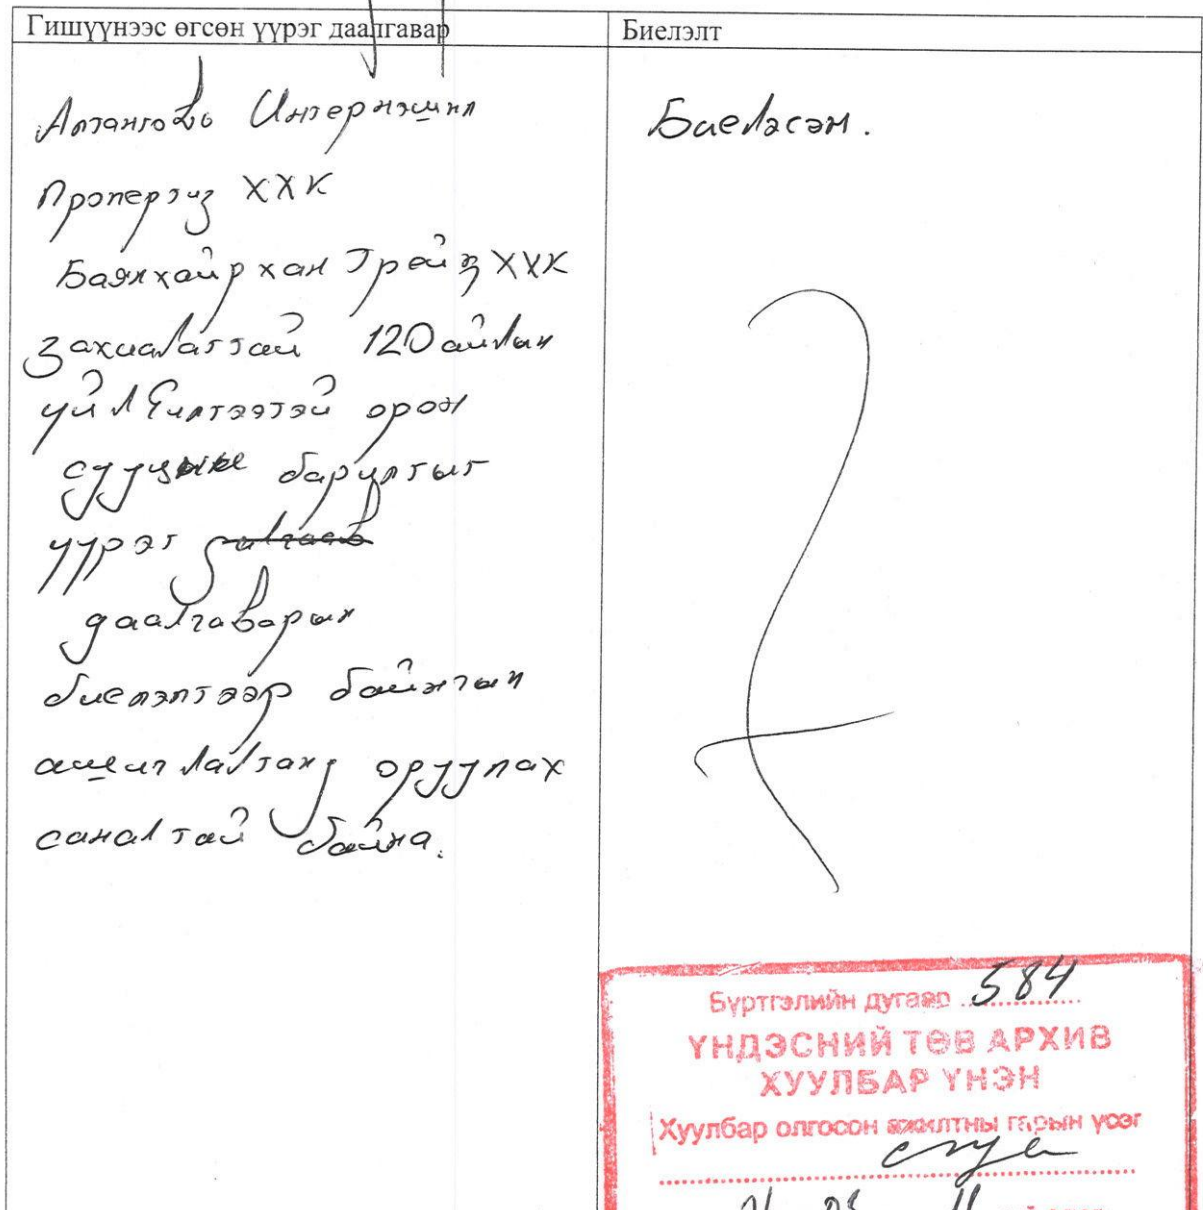 Гишүүнээс өгсөн үүрэг даалгавар
Биелэлт
Алтанговь Интернэшнл
Пропертиз ХХК
Баянхайрхан Трейд ХХК
захиалагтай 120 айлын
үйлчилгээтэй орон
сууцны барилгыг
үүрэг
даалгаварын
биелэлтээр байнгын
ашиглалтанд оруулах
саналтай байна.
Биелэсэн.
Бүртгэлийн дугаар 584
ҮНДЭСНИЙ ТӨВ АРХИВ
ХУУЛБАР ҮНЭН
Хуулбар олгосон ажилтны гарын үсэг